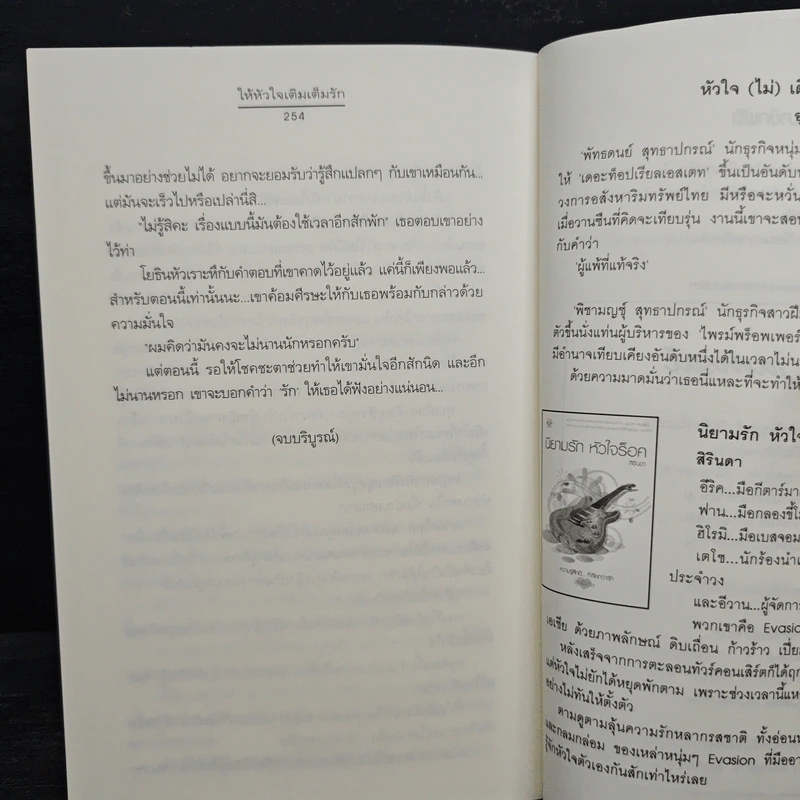 ให้หัวใจเติมเต็มรัก
254
ขึ้นมาอย่างช่วยไม่ได้ อยากจะยอมรับว่ารู้สึกแปลกๆ กับเขาเหมือนกัน...
แต่มันจะเร็วไปหรือเปล่านี่สิ...
"ไม่รู้สิคะ เรื่องแบบนี้มันต้องใช้เวลาอีกสักพัก" เธอตอบเขาอย่าง
ไว้ท่า
โยธินหัวเราะหึกับคำตอบที่เขาคาดไว้อยู่แล้ว แค่นี้ก็เพียงพอแล้ว...
สำหรับตอนนี้เท่านั้นนะ...เขาค้อมศีรษะให้กับเธอพร้อมกับกล่าวด้วย
ความมั่นใจ
"ผมคิดว่ามันคงจะไม่นานนักหรอกครับ"
แต่ตอนนี้ รอให้โชคชะตาช่วยทำให้เขามั่นใจอีกสักนิด และอีก
ไม่นานหรอก เขาจะบอกคำว่า 'รัก' ให้เธอได้ฟังอย่างแน่นอน...
(จบบริบูรณ์)
หัวใจ (ไม่)
'พัทธดนย์ สุทธาปกรณ์' นักธุรกิจหนุ่ม
ให้ 'เดอะท็อปเรียลเอสเตท' ขึ้นเป็นอันดับ
วงการอสังหาริมทรัพย์ไทย มีหรือจะหวั่น
เมื่อวานซืนที่คิดจะเทียบรุ่น งานนี้เขาจะสอน
กับคำว่า
'ผู้แพ้ที่แท้จริง'
'พิชามญชุ์ สุทธาปกรณ์' นักธุรกิจสาว
ตัวขึ้นนั่งแท่นผู้บริหารของ 'ไพรม์พร็อพเพอร์
มีอำนาจเทียบเคียงอันดับหนึ่งได้ในเวลาไม่
ด้วยความมาดมั่นว่าเธอนี่แหละที่จะทำให้
นิยามรัก หัวใจร็อค
สิรินดา
นิยามรัก หัวใจ
สิรินดา
อีริค...มือกีตาร์
ฟาน...มือกลองขี้
ฮิโรมิ...มือเบสจอม
เตโช...นักร้องนำ
ประจำวง
และอีวาน...ผู้จัดการ
พวกเขาคือ Evasion
เอเชีย ด้วยภาพลักษณ์ ดิบเถื่อน ก้าวร้าว
หลังเสร็จจากการตะลอนทัวร์คอนเสิร์ตก็ได้
แต่หัวใจไม่ยักได้หยุดพักตาม เพราะช่วงเวลานี้
อย่างไม่ทันให้ตั้งตัว
ตามดูตามลุ้นความรักหลากรสชาติ ทั้งอ่อน
และกลมกล่อม ของเหล่าหนุ่มๆ Evasion ที่มือ
รู้จักหัวใจตัวเองกันสักเท่าไหร่เลย